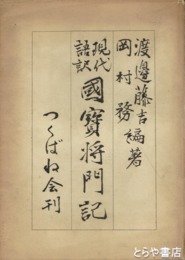 渡邊藤吉
岡村務 編著
現代語訳
國寶将門記
つくばね会刊
とらや書店